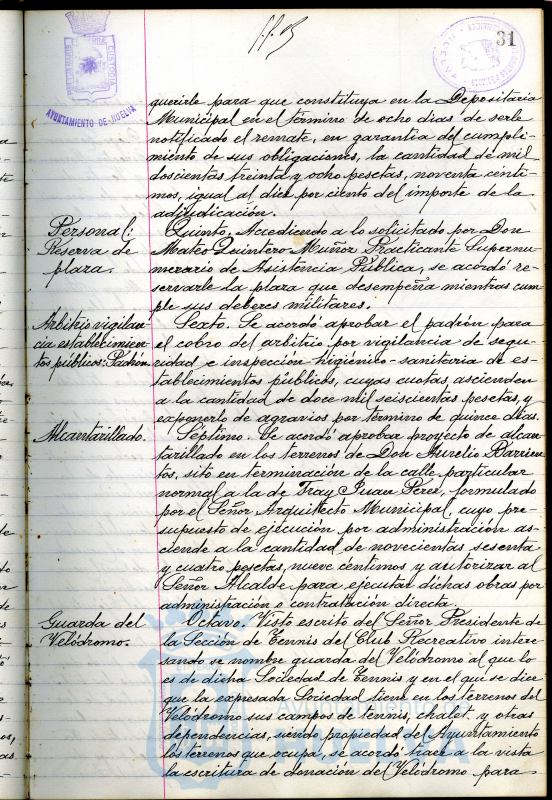 31
AYUNTAMIENTO DE HUELVA
querirle para que constituya en la Depositaria
Municipal en el término de ocho dias de serle
notificado el remate, en garantia del cumpli-
miento de sus obligaciones, la cantidad de mil
doscientas treinta y ocho pesetas, noventa centi-
mos, igual al diez por ciento del importe de la
adjudicación.
Personal:
Reserva de
plaza.
Quinto. Accediendo a lo solicitado por Don
Mateo Quintero Muñoz Practicante Supernu-
merario de Asistencia Pública, se acordó re-
servarle la plaza que desempeña mientras cum-
ple sus deberes militares.
Arbitrio vigilan-
cia establecimien-
tos públicos: Padrón
Sexto. Se acordó aprobar el padrón para
el cobro del arbitrio por vigilancia de segu-
ridad e inspección higiénico-sanitaria de es-
tablecimientos públicos, cuyas cuotas, ascienden
a la cantidad de doce mil seiscientas pesetas, y
exponerlo de agravios por término de quince días.
Alcantarillado.
Séptimo. Se acordó aprobar proyecto de alcan-
tarillado en los terrenos de Don Aurelio Barrien-
tos, sito en terminación de la calle particular
normal a la de Fray Juan Perez, formulado
por el Señor Arquitecto Municipal, cuyo pre-
supuesto de ejecución por administración as-
ciende a la cantidad de novecientas sesenta
y cuatro pesetas, nueve céntimos y autorizar al
Señor Alcalde para ejecutar dichas obras por
administración o contratación directa.
Guarda del
Velódromo.
Octavo. Visto escrito del Señor Presidente de
la Sección de Tennis del Club Recreativo intere-
sando se nombre guarda del Velódromo al que lo
es de dicha Sociedad de Tennis y en el que se dice
que la expresada Sociedad tiene en los terrenos del
Velódromo sus campos de tennis, chalet y otras
dependencias, siendo propiedad del Ayuntamiento
los terrenos que ocupa, se acordó traer a la vista
la escritura de donación del Velódromo para
Ayuntamiento de